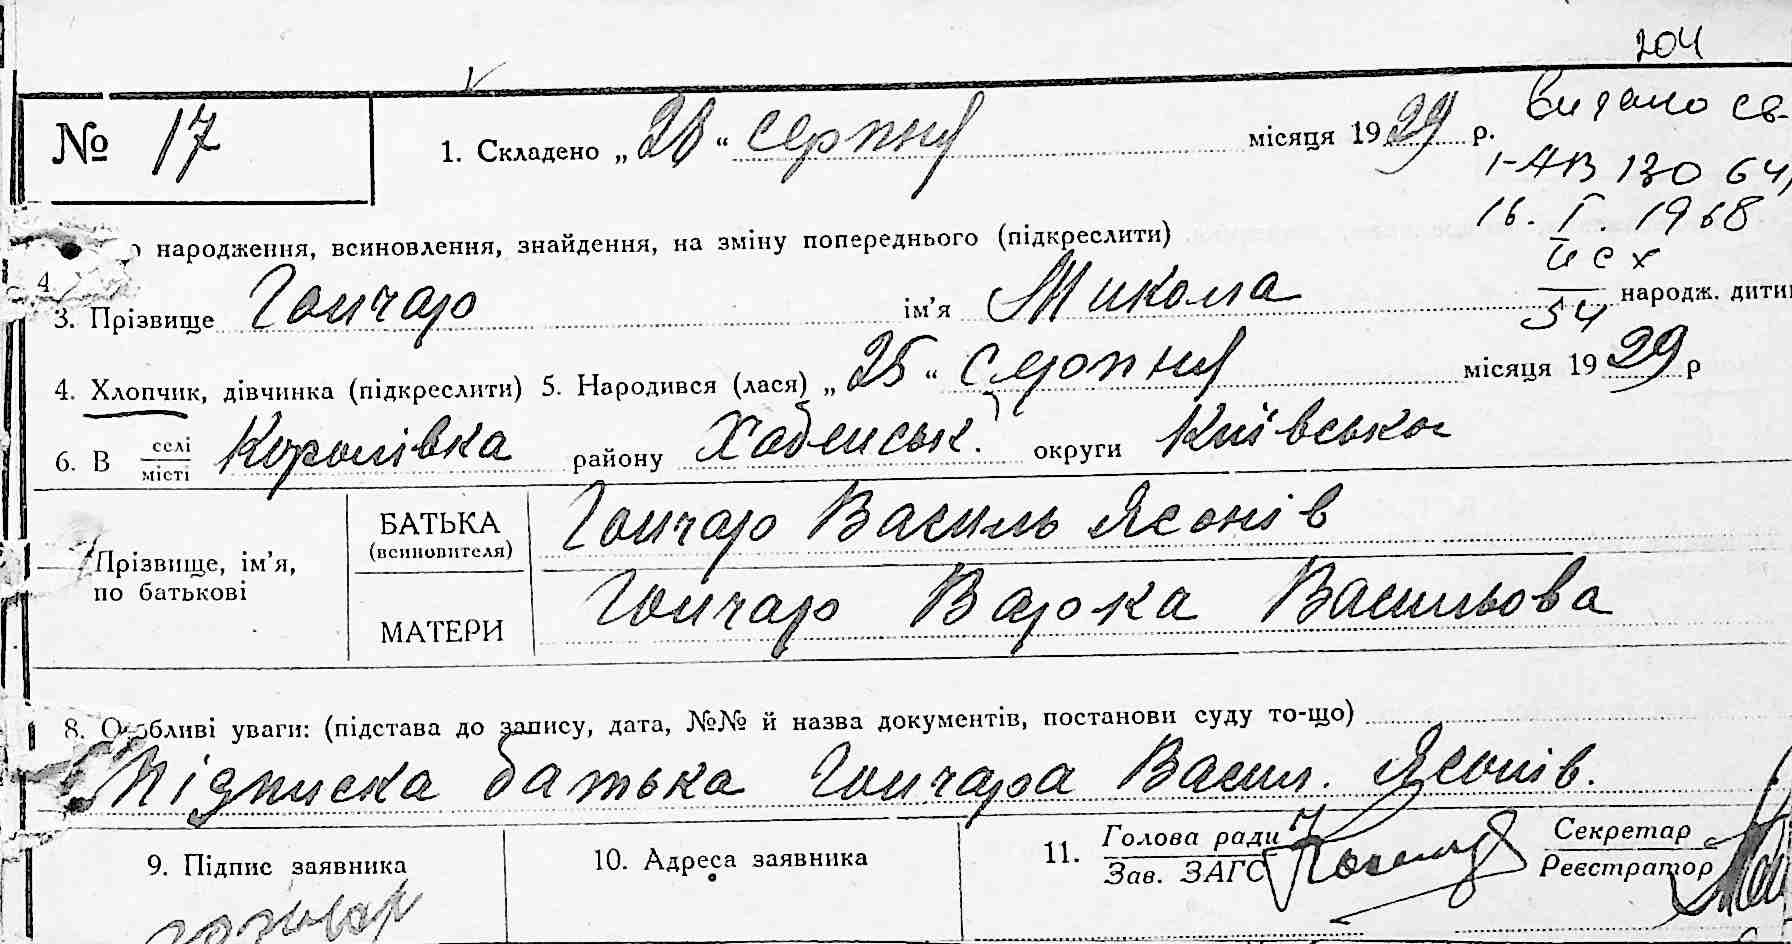 204
№ 17
1. Складено „28“ серпня місяця 1929 р.
видано св-
I-АВ 130 64
16. I. 1968
исх
54
народження, всиновлення, знайдення, на зміну попереднього (підкреслити)
4
3. Прізвище Гончар ім’я Микола народж. дити
4. Хлопчик, дівчинка (підкреслити) 5. Народився (лася) „25“ серпня місяця 1929 р
6. В селі місті Королівка району Хабенськ. округи Київсько
Прізвище, ім’я, по батькові
БАТЬКА (всиновителя) Гончар Василь Ясонів
МАТЕРИ Гончар Варка Васильова
8. Особливі уваги: (підстава до запису, дата, №№ й назва документів, постанови суду то-що)
Підписка батька Гончара Васил. Ясонів.
9. Підпис заявника
гончар
10. Адреса заявника
11. Голова ради Зав. ЗАГС
Секретар Реєстратор